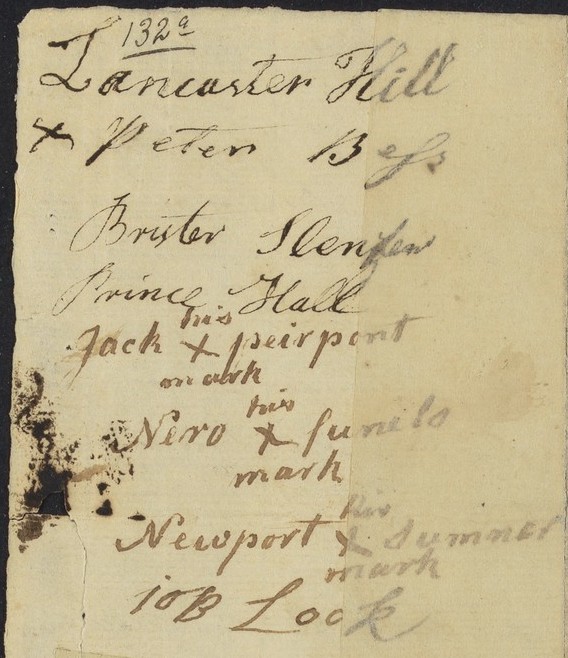 132a
Lancaster Hill
x Peter Bess
Brister Slenfen
Prince Hall
his
Jack x peirpont
mark
his
Nero x funelo
mark
his
Newport x Sumner
mark
ioB Look